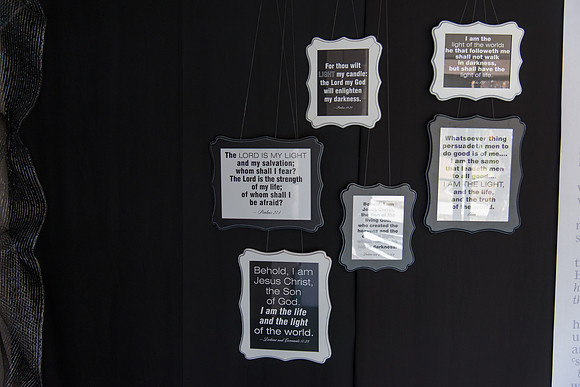 For thou wilt
LIGHT my candle:
the Lord my God
will enlighten
my darkness.
I am the
light of the world:
he that followeth me
shall not walk
in darkness,
but shall have the
light of life.
The LORD IS MY LIGHT
and my salvation;
whom shall I fear?
The Lord is the strength
of my life;
of whom shall I
be afraid?
—Psalms 27:1
Whatsoever thing
persuadeth men to
do good is of me....
I am the same
that leadeth men
to all good....
I AM THE LIGHT,
and the life,
and the truth
of the
Jesus Christ,
the Son of the
living God,
who created the
and the
darkness.
Behold, I am
Jesus Christ,
the Son
of God.
I am the life
and the light
of the world.
—Doctrine and Covenants 11:28